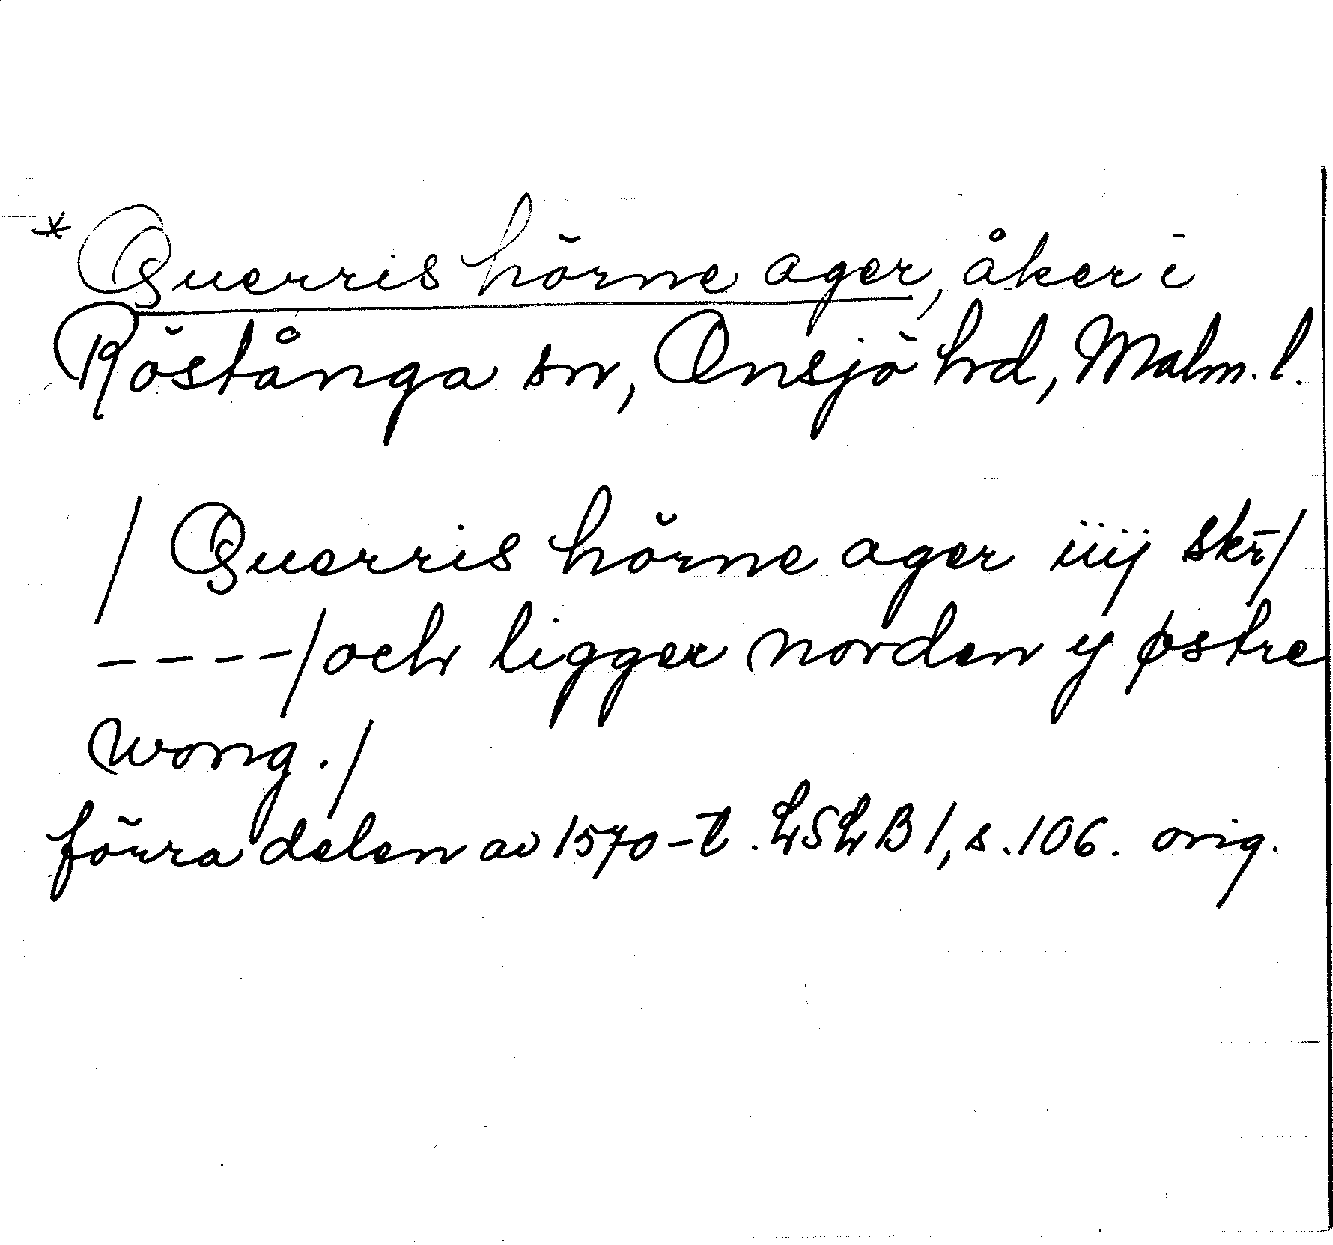 * Querris hörne ager, åker i
Röstånga sn, Onsjö hrd, Malm. l.
/ Querris hörne ager iiij skr/
----/och ligger norden y østre
wong./
förra delen av 1570-t. LSLB 1, s. 106. orig.